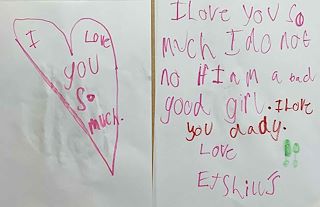 I LOVE
YOU
SO
much.
I Love You So
much I do not
no if I n m a bad
good girl. I Love
you dady.
Love